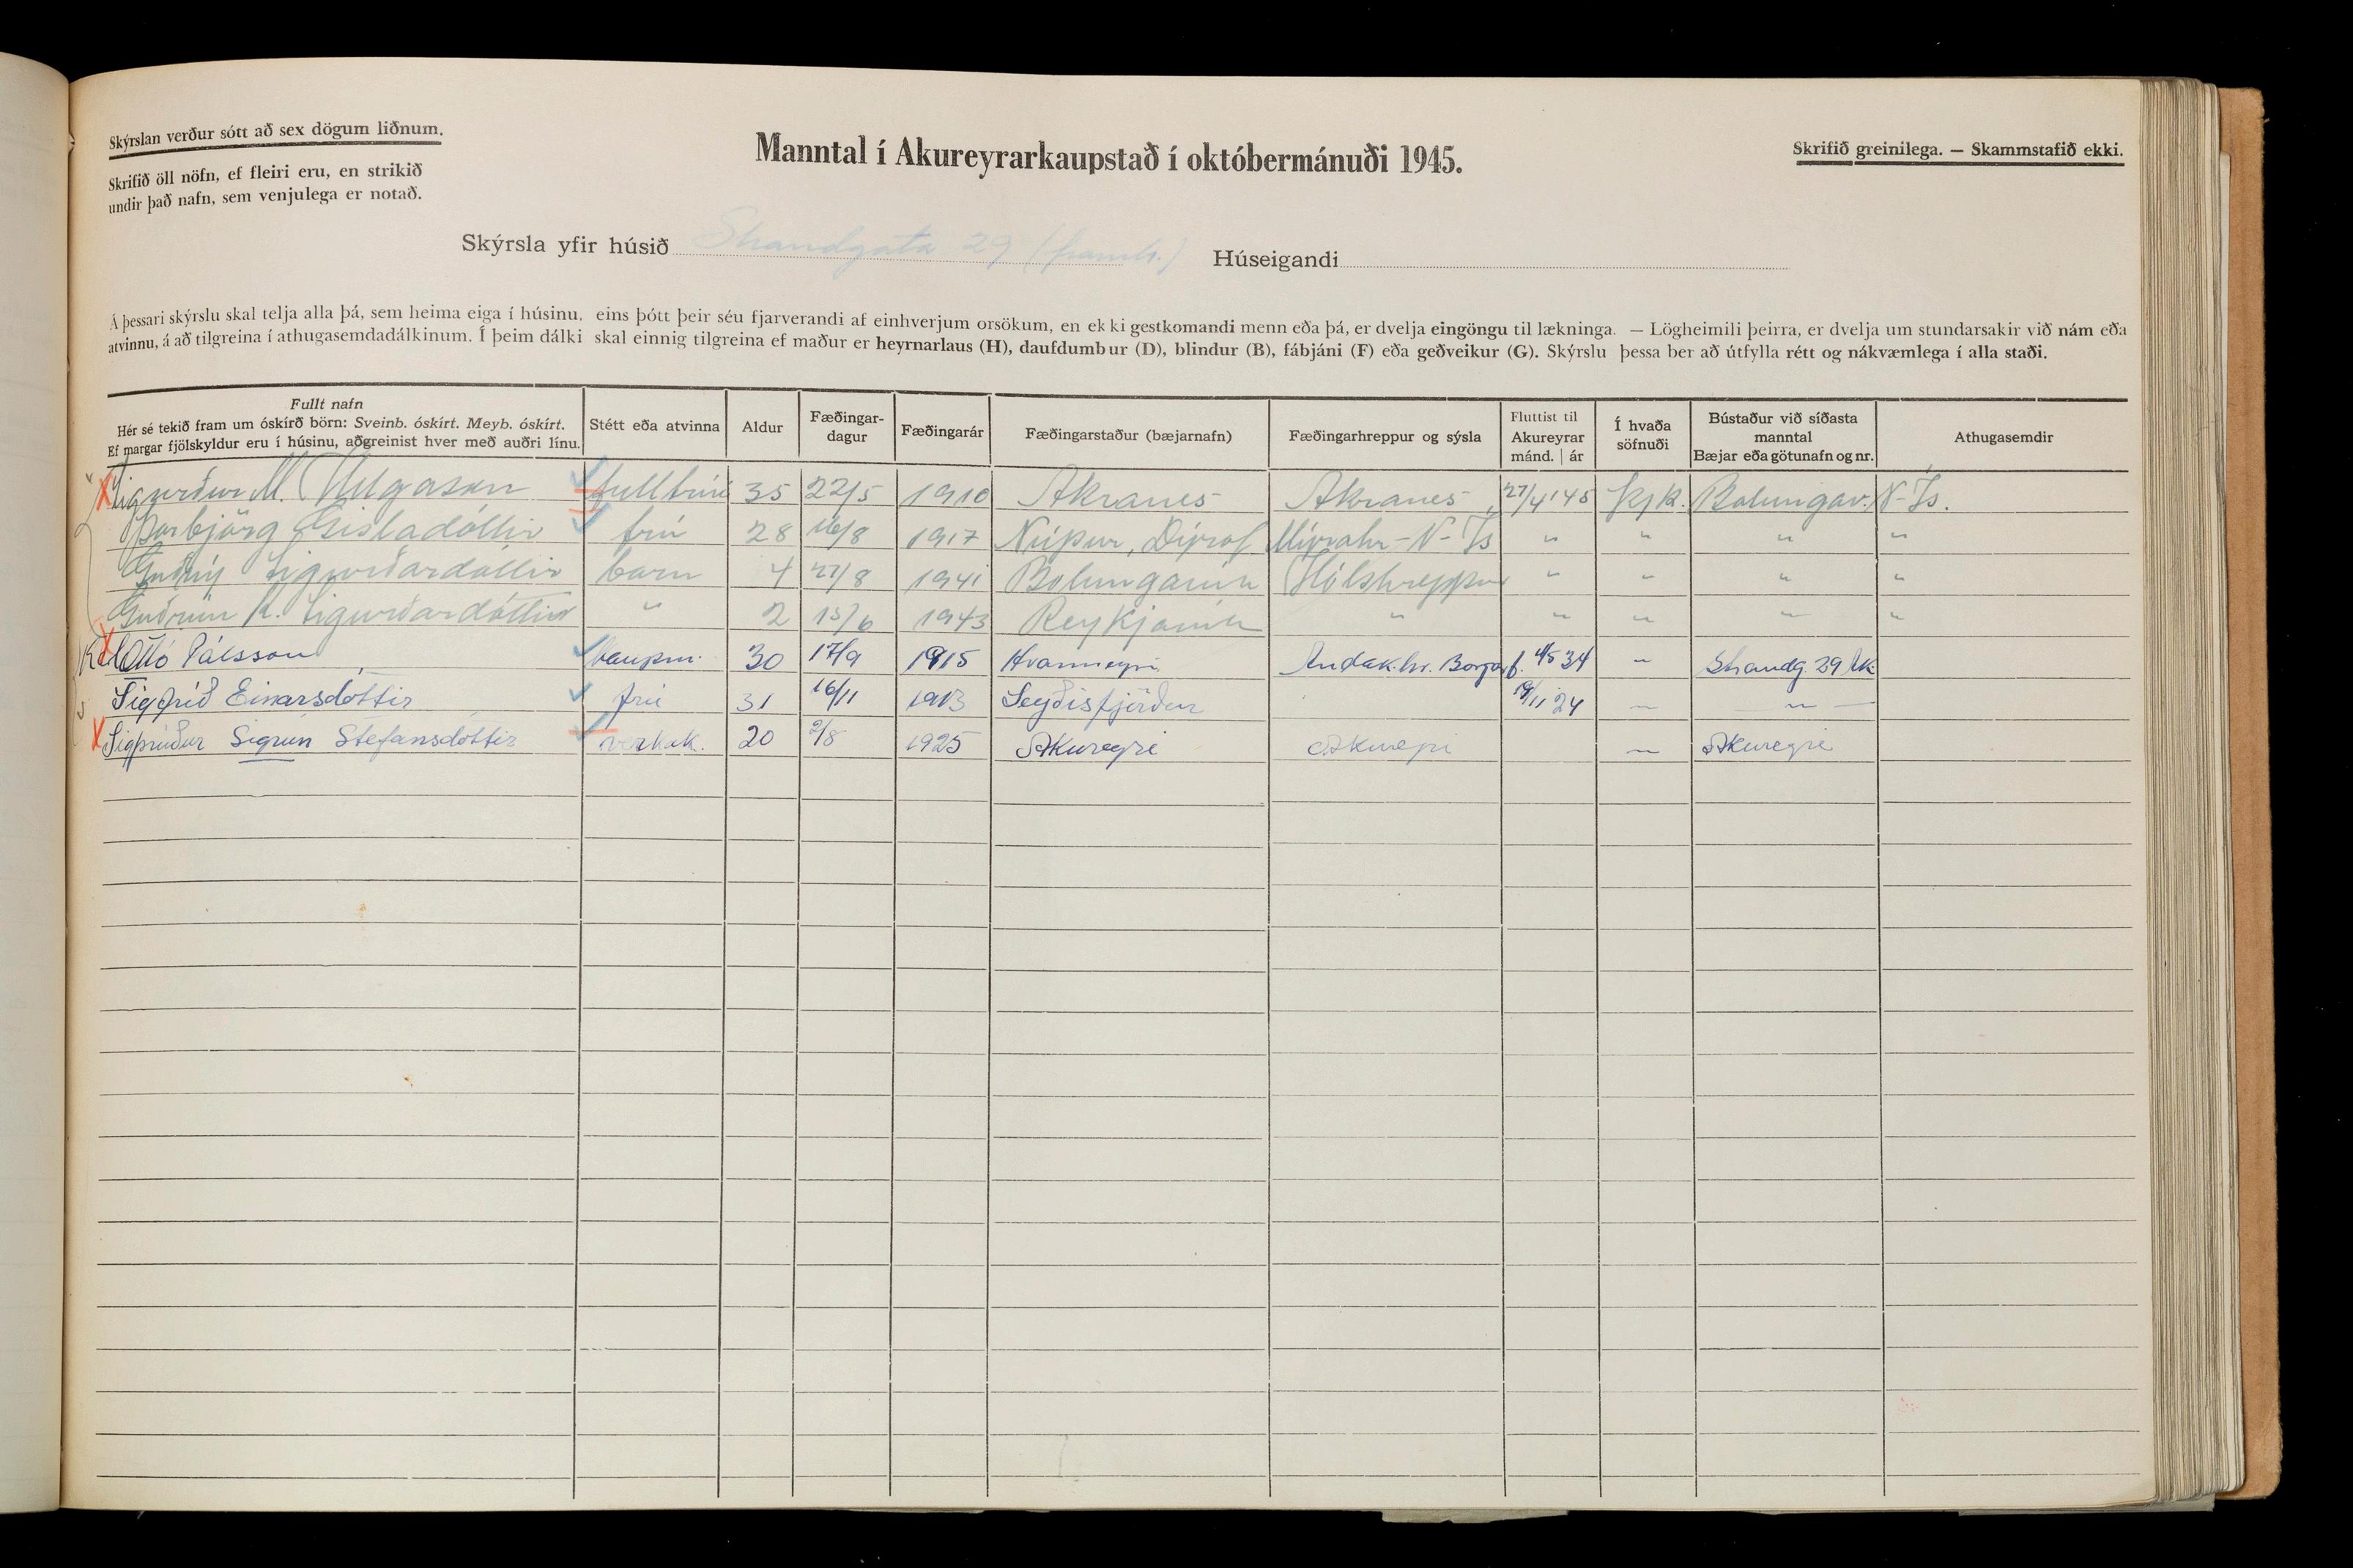 Skýrslan verður sótt að sex dögum liðnum.
Skrifið öll nöfn, ef fleiri eru, en strikið
undir það nafn, sem venjulega er notað.
Manntal í Akureyrarkaupstað í októbermánuði 1945.
Skrifið greinilega. — Skammstafið ekki.
Skýrsla yfir húsið Strandgata 29 (framh.) Húseigandi
Á þessari skýrslu skal telja alla þá, sem heima eiga í húsinu, eins þótt þeir séu fjarverandi af einhverjum orsökum, en ekki gestkomandi menn eða þá, er dvelja eingöngu til lækninga. — Lögheimili þeirra, er dvelja um stundarsakir við nám eða
atvinnu, á að tilgreina í athugasemdadálkinum. Í þeim dálki skal einnig tilgreina ef maður er heyrnarlaus (H), daufdumbur (D), blindur (B), fábjáni (F) eða geðveikur (G). Skýrslu þessa ber að útfylla rétt og nákvæmlega í alla staði.
Fullt nafn
Hér sé tekið fram um óskírð börn: Sveinb. óskírt. Meyb. óskírt.
Ef margar fjölskyldur eru í húsinu, aðgreinist hver með auðri línu.
Stétt eða atvinna
Aldur
Fæðingar-
dagur
Fæðingarár
Fæðingarstaður (bæjarnafn)
Fæðingarhreppur og sýsla
Fluttist til
Akureyrar
mánd. | ár
Í hvaða
söfnuði
Bústaður við síðasta
manntal
Bæjar eða götunafn og nr.
Athugasemdir
Sigurður M. Helgason fulltrúi 35 22/5 1910 Akranes Akranes 27/4 '45 Þjk. Bolungav. N-Ís.
Þorbjörg Gísladóttir frú 28 16/8 1917 Núpur, Dýraf Mýrahr-N-Ís " " " "
Guðný Sigurðardóttir barn 4 27/8 1941 Bolungavík Hólshreppur " " " "
Guðrún K. Sigurðardóttir " 2 15/6 1943 Reykjavík " " " " "
Karl Ottó Pálsson kaupm. 30 17/9 1915 Hvanneyri Andak.hr. Borgarf. 4/5 34 " Strandg. 29 Ak.
Sigfríð Einarsdóttir frú 31 16/11 1913 Seyðisfjörður 19/11 24 " "
Sigþrúður Sigrún Stefansdóttir verkak. 20 2/8 1925 Akureyri Akureyri " Akureyri